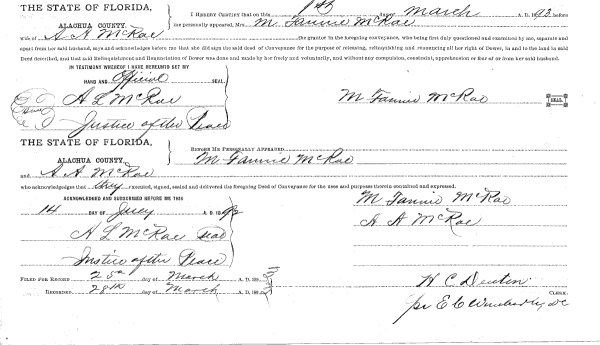 THE STATE OF FLORIDA,
ALACHUA COUNTY.
I HEREBY CERTIFY that on this 1st day of March A. D. 1892 before
me personally appeared, Mrs. M. Fannie McRae
Wife of A A McRae the grantor in the foregoing conveyance, who being first duly questioned and examined by me, separate and
apart from her said husband, says and acknowledges before me that she did sign the said deed of Conveyance for the purpose of releasing, relinquishing and renouncing all her right of Dower, in and to the land in said
Deed described, and that said Relinquishment and Renunciation of Dower was done and made by her freely and voluntarily, and without any compulsion, constraint, apprehension or fear of or from her said husband.
IN TESTIMONY WHEREOF I HAVE HEREUNTO SET MY
HAND AND Official SEAL
A L McRae
Justice of the Peace
M Fannie McRae
SEAL
THE STATE OF FLORIDA,
ALACHUA COUNTY.
BEFORE ME PERSONALLY APPEARED
M Fannie McRae
and A A McRae
who acknowledges that they executed, signed, sealed and delivered the foregoing Deed of Conveyance for the uses and purposes therein contained and expressed.
ACKNOWLEDGED AND SUBSCRIBED BEFORE ME THIS
14 DAY OF July A. D. 1892
A L McRae Seal
Justice of the Peace
M Fannie McRae
A A McRae
FILED FOR RECORD 25th day of March A. D. 189
RECORDED 28th day of March A. D. 189
H C Denton
CLERK.
pr E C Wimberly, DC